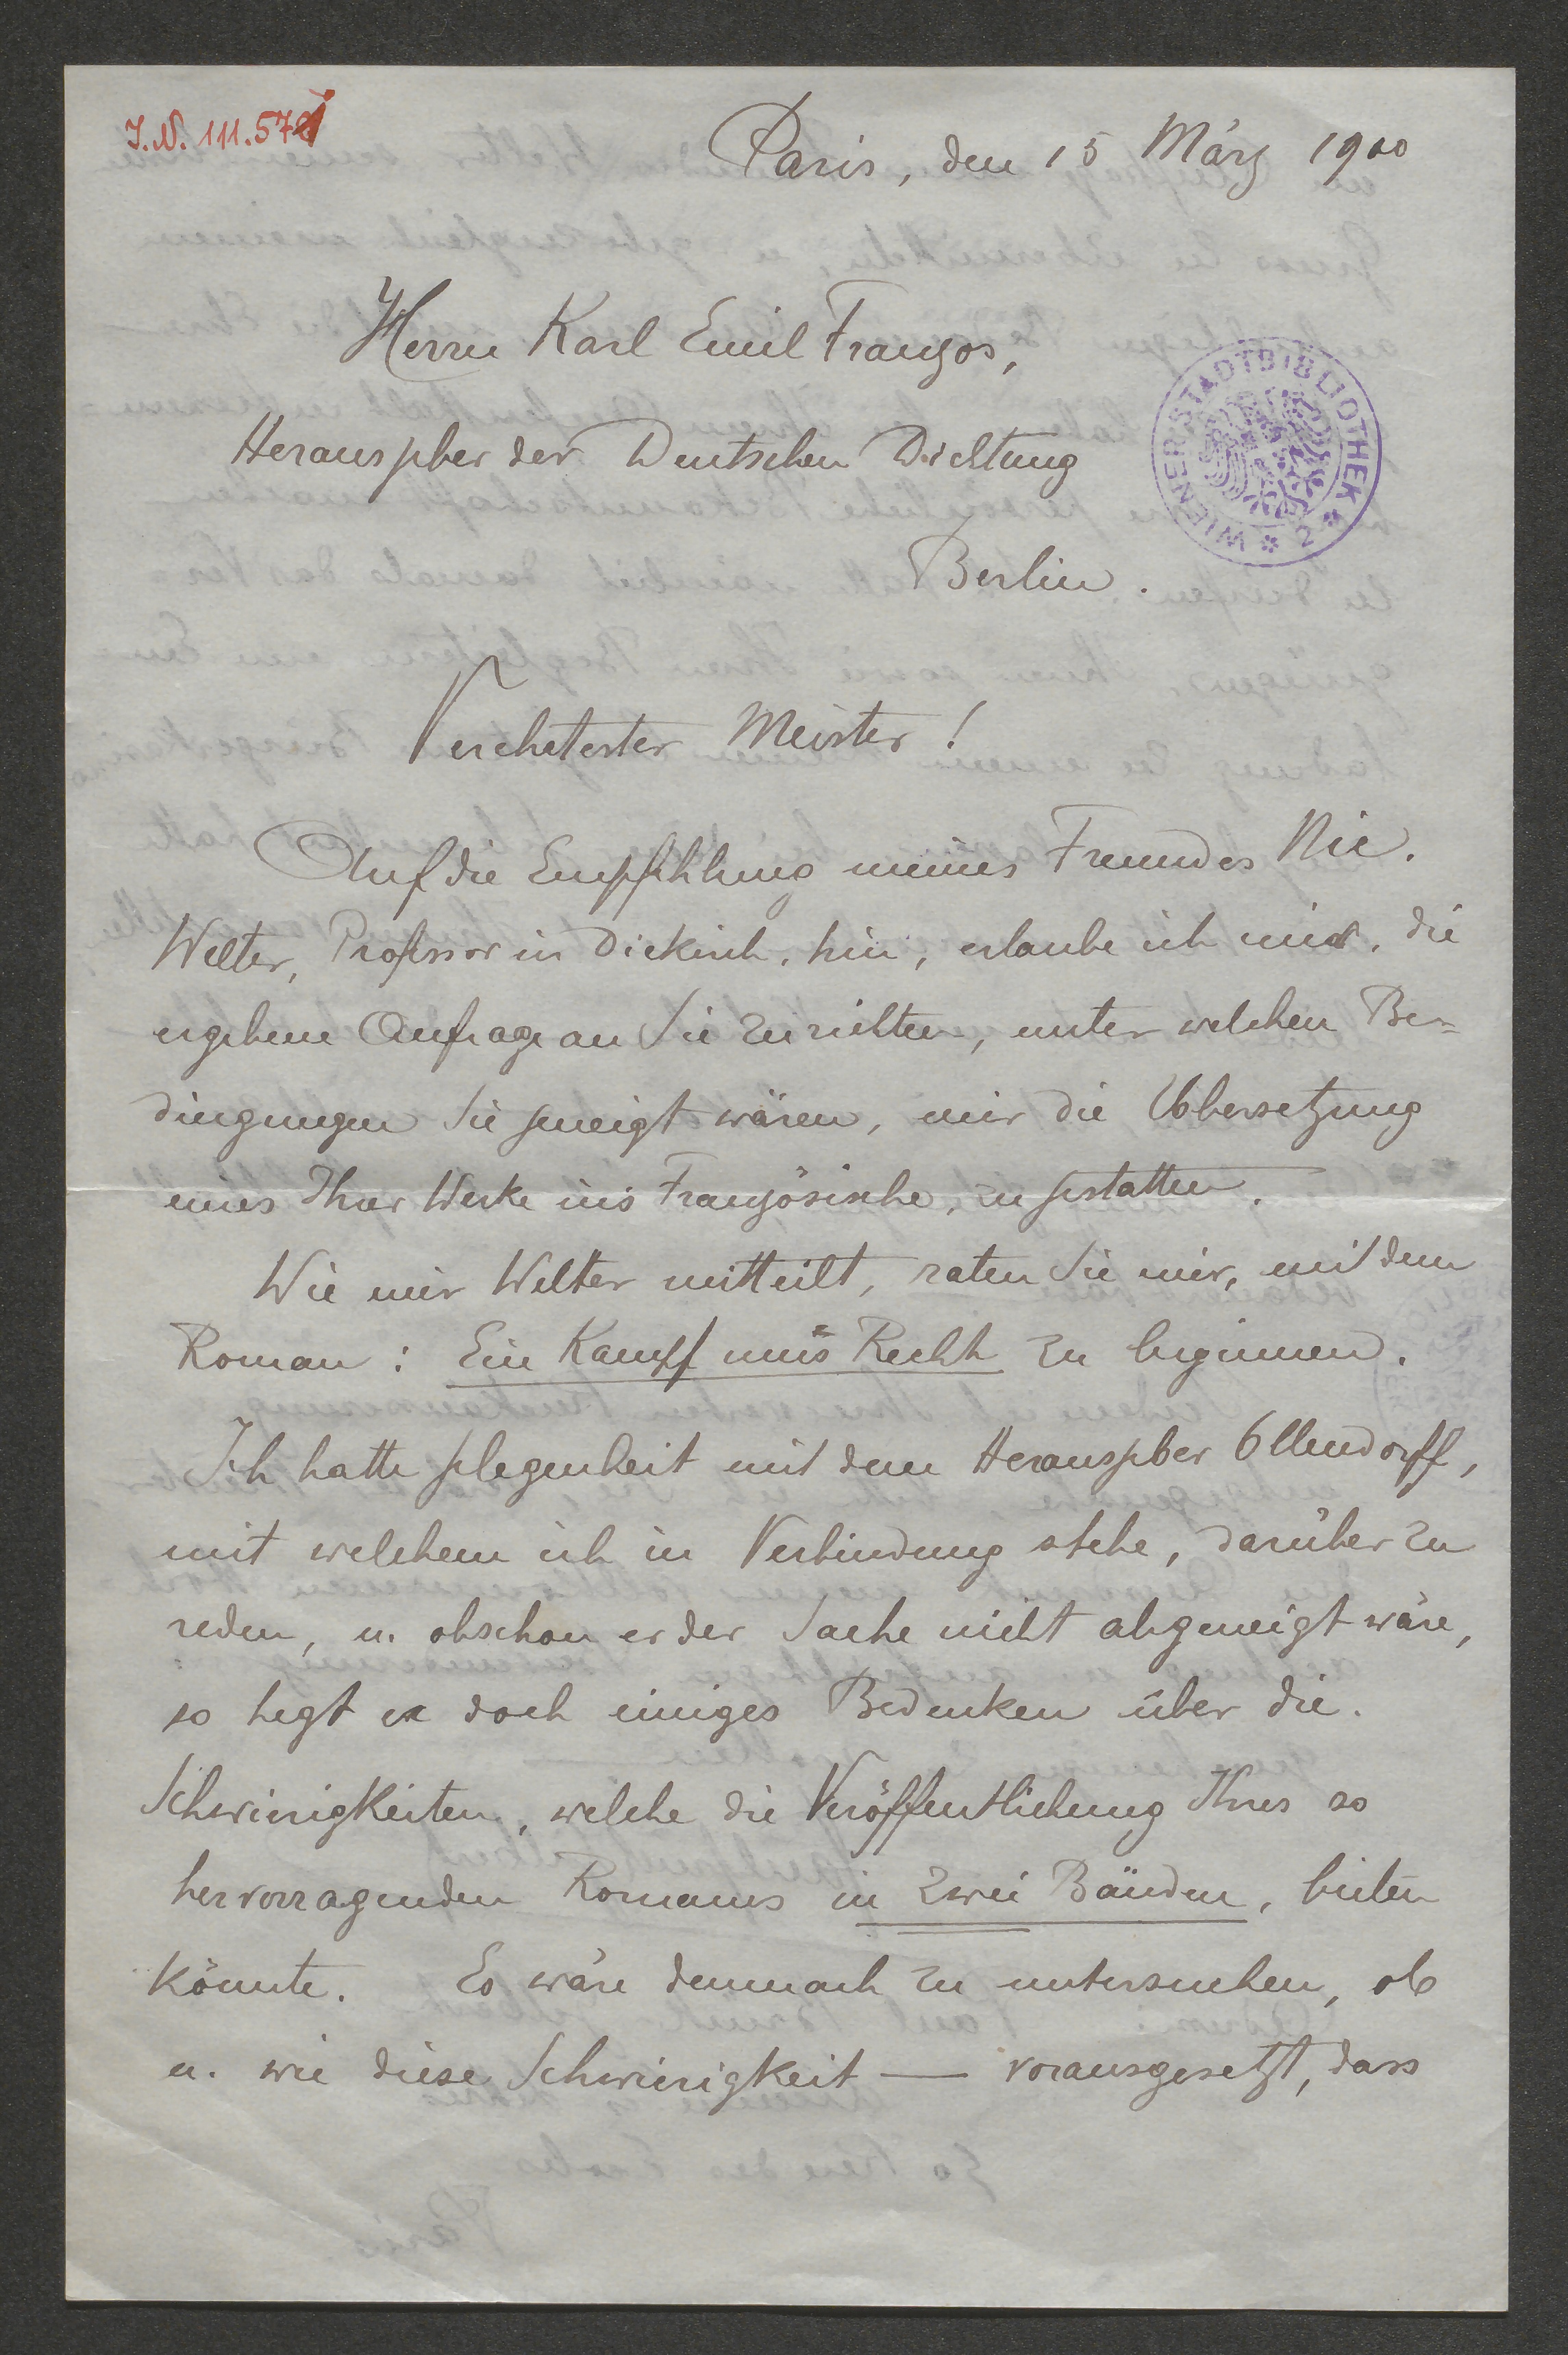 J.N. 111.578
Paris, den 15 März 1900
Herrn Karl Emil Franzos,
Herausgeber der Deutschen Dichtung
Berlin.
WIENER STADTBIBLIOTHEK
Verehrtester Meister!
Auf die Empfehlung meines Freundes Nic.
Welter, Professor in Diekirch, hin, erlaube ich mir, die
ergebene Anfrage an Sie zu richten, unter welchen Be=
dingungen Sie geneigt wären, mir die Übersetzung
eines Ihrer Werke ins Französische, zu gestatten.
Wie mir Welter mitteilt, raten Sie mir, mit dem
Roman: Ein Kampf um's Recht zu beginnen.
Ich hatte Gelegenheit mit dem Herausgeber Ollendorff,
mit welchem ich in Verbindung stehe, darüber zu
reden, u. obschon er der Sache nicht abgeneigt wäre,
so hegt er doch einiges Bedenken über die
Schwierigkeiten, welche die Veröffentlichung Ihres so
hervorragenden Romans in zwei Bänden, bieten
könnte. Es wäre demnach zu untersuchen, ob
u. wie diese Schwierigkeit — vorausgesetzt, dass